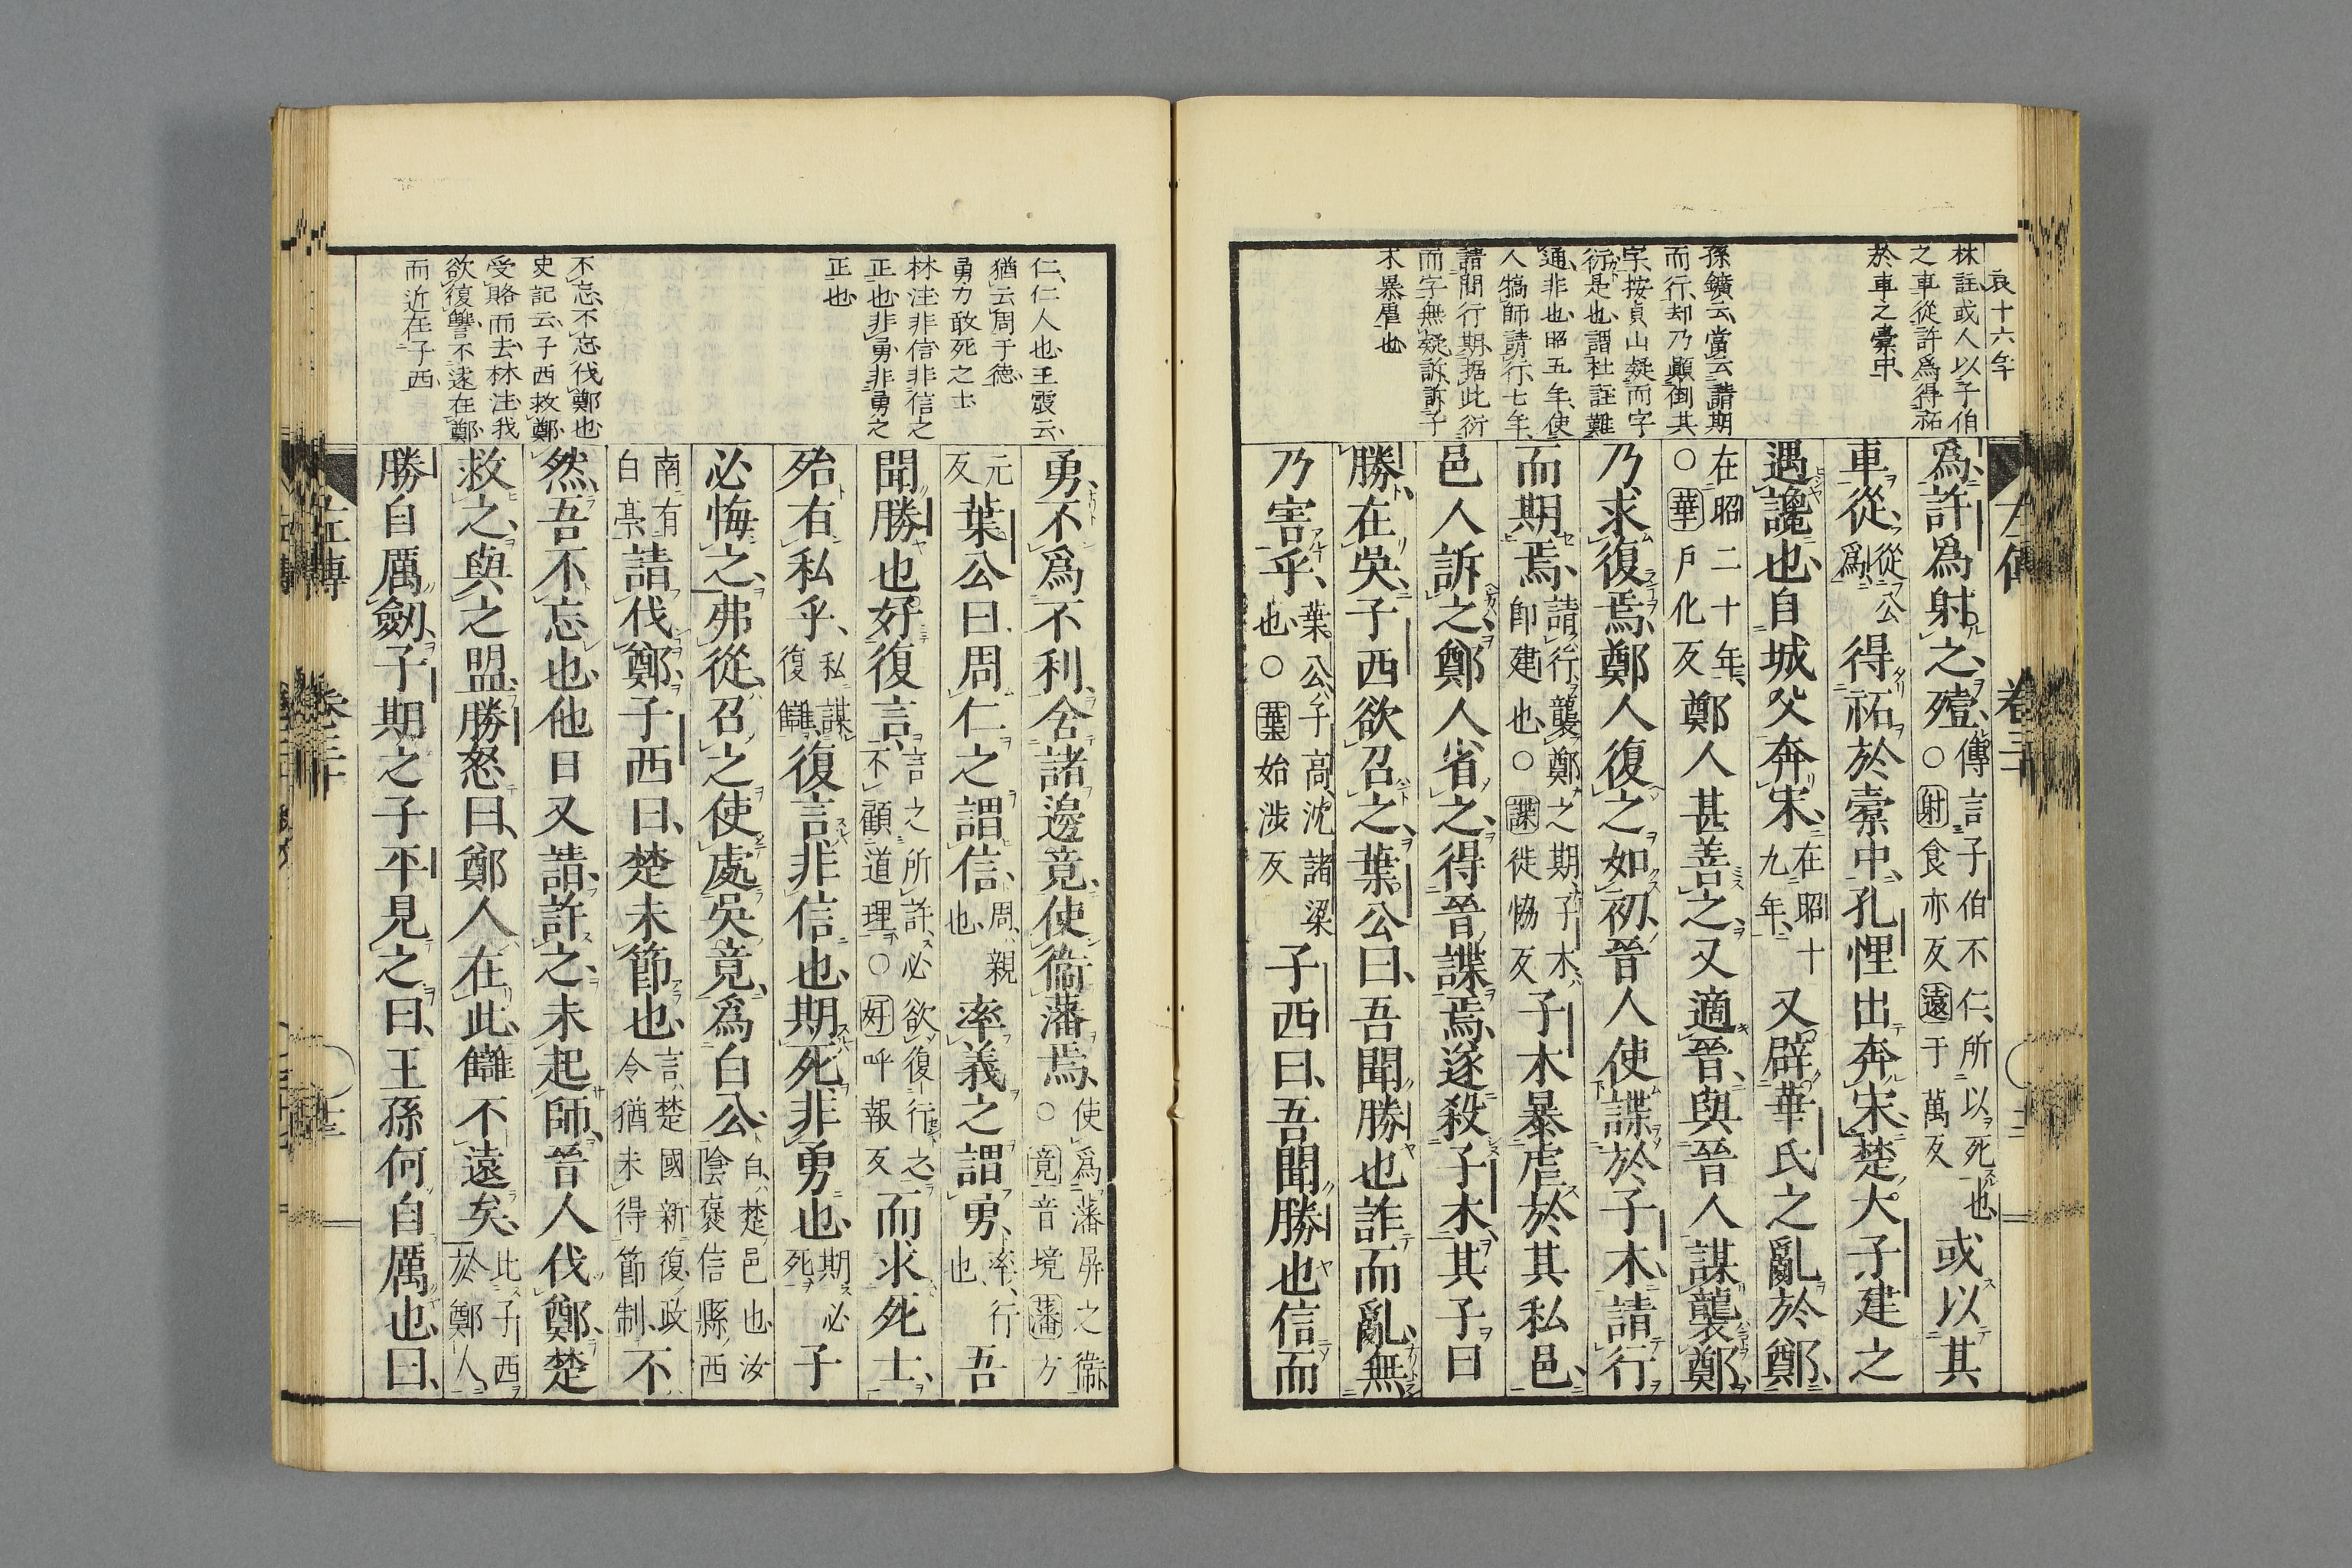 哀十六年
林註或人以子伯
之車從許爲得祏
於車之橐中
孫鑛云當云請期
而行却乃顚倒其
字按貞山疑而字
衍是也謂杜註難
通非也昭五年使
人犒師請行七年
請問行期据此衍
而字無疑訴訴子
木暴虐也
爲許爲射之殪傳言子伯不仁所以死也○射食亦反遠于萬反或以其
車從從公爲得祏於橐中孔悝出奔宋楚大子建之
遇讒也自城父奔宋在昭十九年又辟華氏之亂於鄭
在昭二十年○華戶化反鄭人甚善之又適晉與晉人謀襲鄭
乃求復焉鄭人復之如初晉人使諜於子木請行
而期焉請行襲鄭之期子木卽建也○諜徙恊反子木暴虐於其私邑
邑人訴之鄭人省之得晉諜焉遂殺子木其子曰
勝在吳子西欲召之葉公曰吾聞勝也詐而亂無
乃害乎葉公子高沈諸梁也○葉始涉反子西曰吾聞勝也信而
左傳 卷三十
仁仁人也王震云
猶云周于德
勇力敢死之士
林注非信非信之
正也非勇非勇之
正也
不忘不忘伐鄭也
史記云子西救鄭
受賂而去林注我
欲復讐不遂在鄭
而近在子西
勇不爲不利舍諸邊竟使衞藩焉使爲藩屛之衞○竟音境藩方
元反葉公曰周仁之謂信周親也率義之謂勇率行也吾
聞勝也好復言言之所許必欲復行之不顧道理○好呼報反而求死士
殆有私乎私謀復讎復言非信也期死非勇也期必死子
必悔之弗從召之使處吳竟爲白公白楚邑也汝陰襃信縣西
南有白亭請伐鄭子西曰楚未節也言楚國新復政令猶未得節制不
然吾不忘也他日又請許之未起師晉人伐鄭楚
救之與之盟勝怒曰鄭人在此讎不遠矣此子西於鄭人
勝自厲劒子期之子平見之曰王孫何自厲也曰
左傳 卷三十